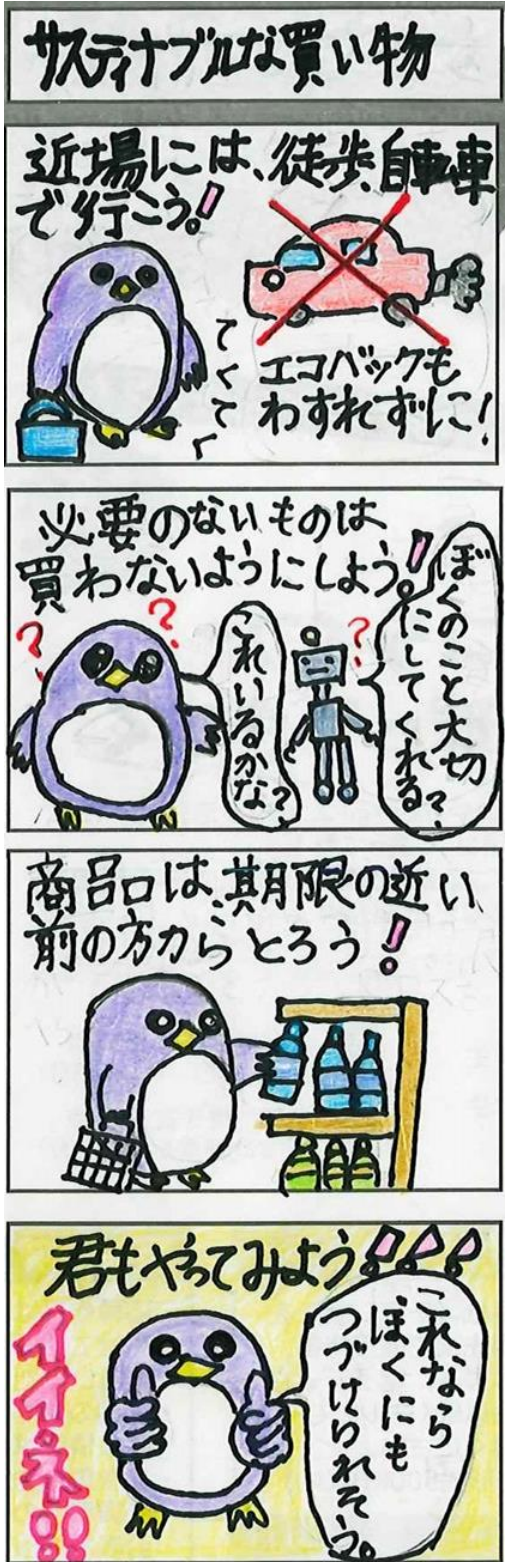 サスティナブルな買い物
近場には、徒歩、自転車
で行こう!
てくてく
エコバックも
わすれずに!
必要のないものは
買わないようにしよう!
?
?
これいるかな?
?
ぼくのこと大切
にしてくれる?
商品は、期限の近い
前の方からとろう!
君もやってみよう!!!
これなら
ぼくにも
つづけられそう。
イイネ!!